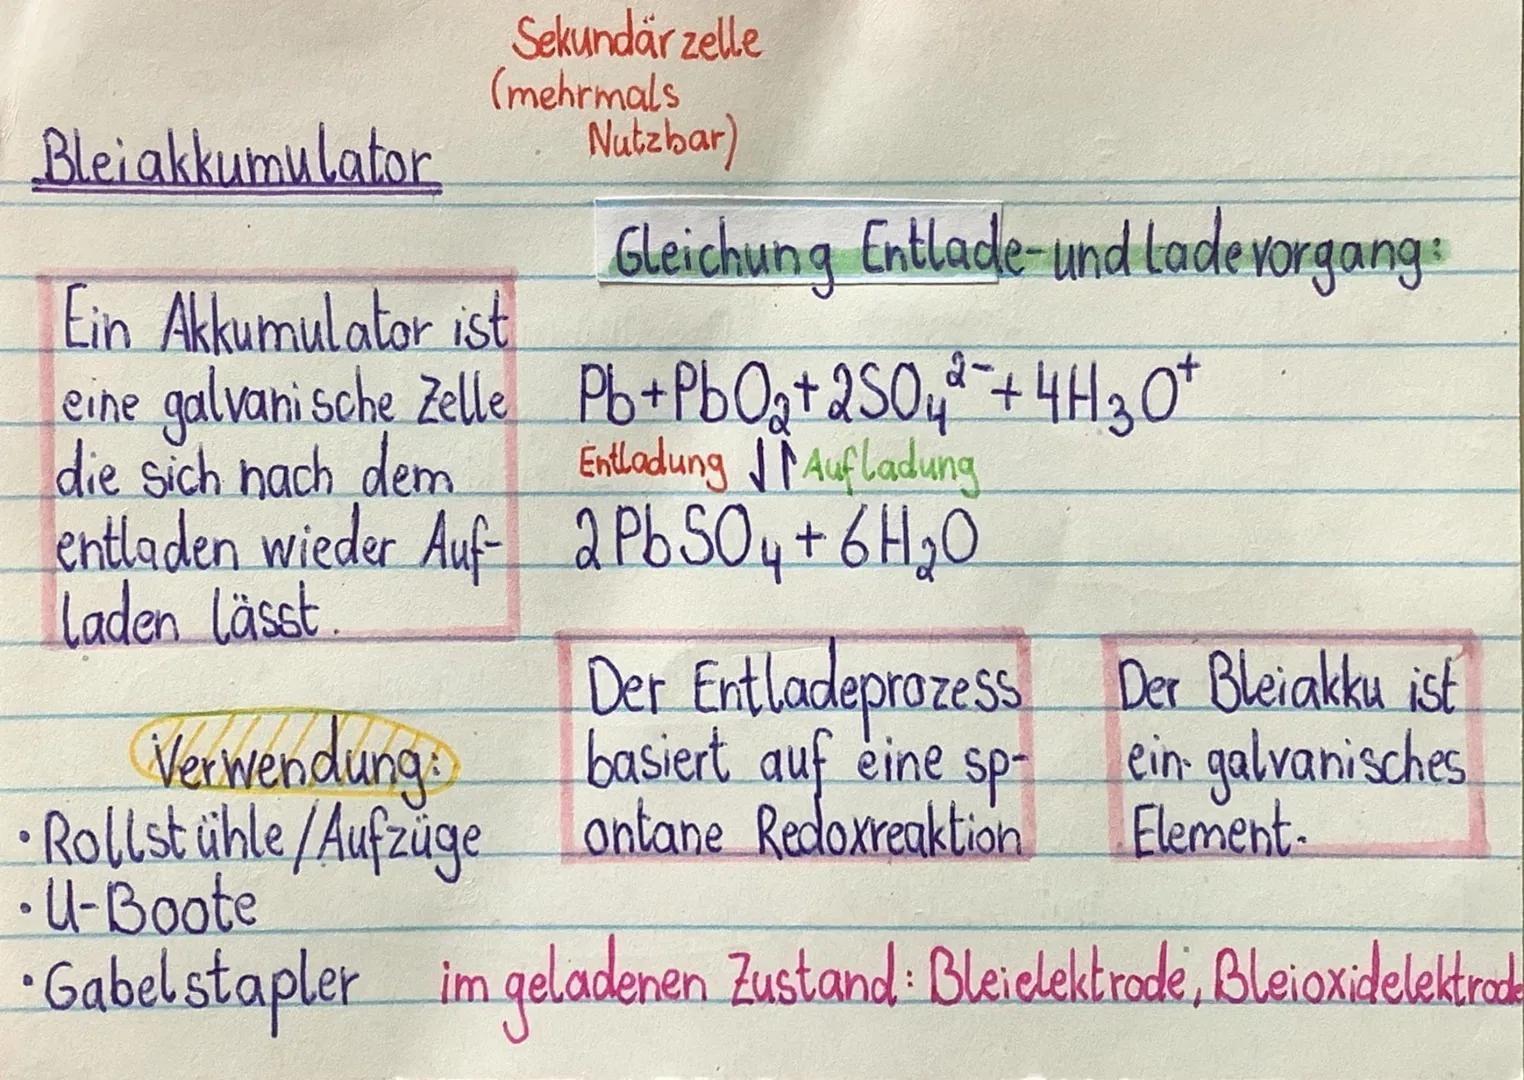 Sekundärzelle
(mehrmals
Nutzbar)
Bleiakkumulator
Gleichung Entlade-und Ladevorgang:
Ein Akkumulator ist
eine galvanische Zelle
die sich nach dem
entladen wieder Auf-
laden lässt.
Pb+PbO₂+2SO₄²⁻+4H₃O⁺
Entladung ↓↑ Aufladung
2PbSO₄+6H₂O
Verwendung:
• Rollstühle/Aufzüge
• U-Boote
• Gabelstapler
Der Entladeprozess
basiert auf eine sp-
ontane Redoxreaktion
Der Bleiakku ist
ein galvanisches
Element.
im geladenen Zustand: Bleielektrode, Bleioxidelektrode